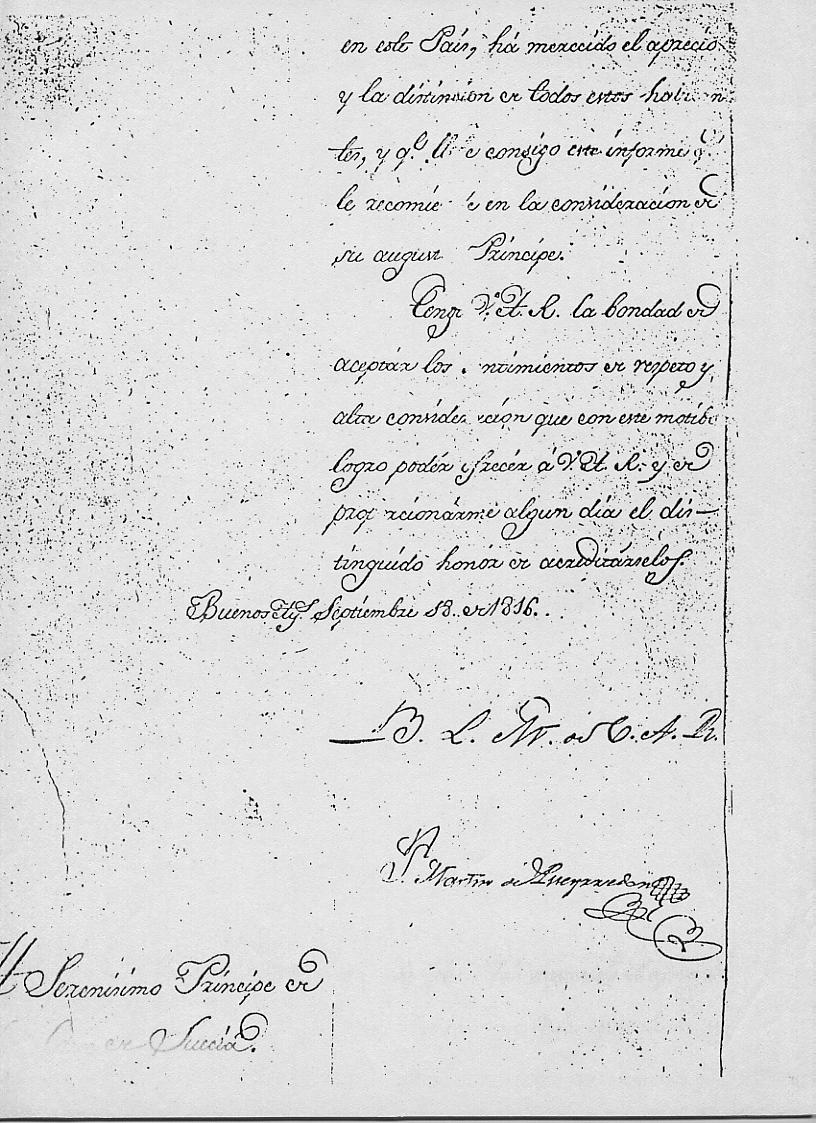 en este País, há merecido el aprecio
y la distincion de todos estos habi n
tes, y q.e ll e consigo este informe q.e
le recomie e en la consideracion de
su august Príncipe.
Teng V.A. R. la bondad de
aceptár los ntimientos de respeto y
alta conside racion que con este motibo
logro podér ofrecér á V.A. R. y de
prop rcionárme algun día el dis-
tinguído honór de acreditárselos.
Buenos Ay.s Septiembre 18. de 1816..
B. L. M. de V. A. R.
J. Martin de Pueyrredon
Serenísimo Príncipe de
de Suecia.